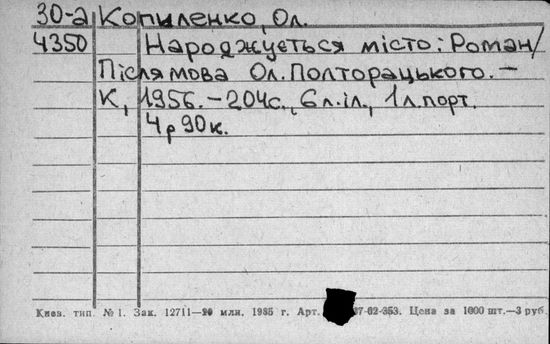 30-а Копиленко, Ол.
4350 Народжується місто: Роман/
Післямова Ол. Полторацького. –
К, 1956. – 204с., 6л.іл., 1л.порт.
4р 90к.
Киев. тип. № 1. Зак. 12711—20 млн. 1985 г. Арт. 37-02-353. Цена за 1000 шт.—3 руб.